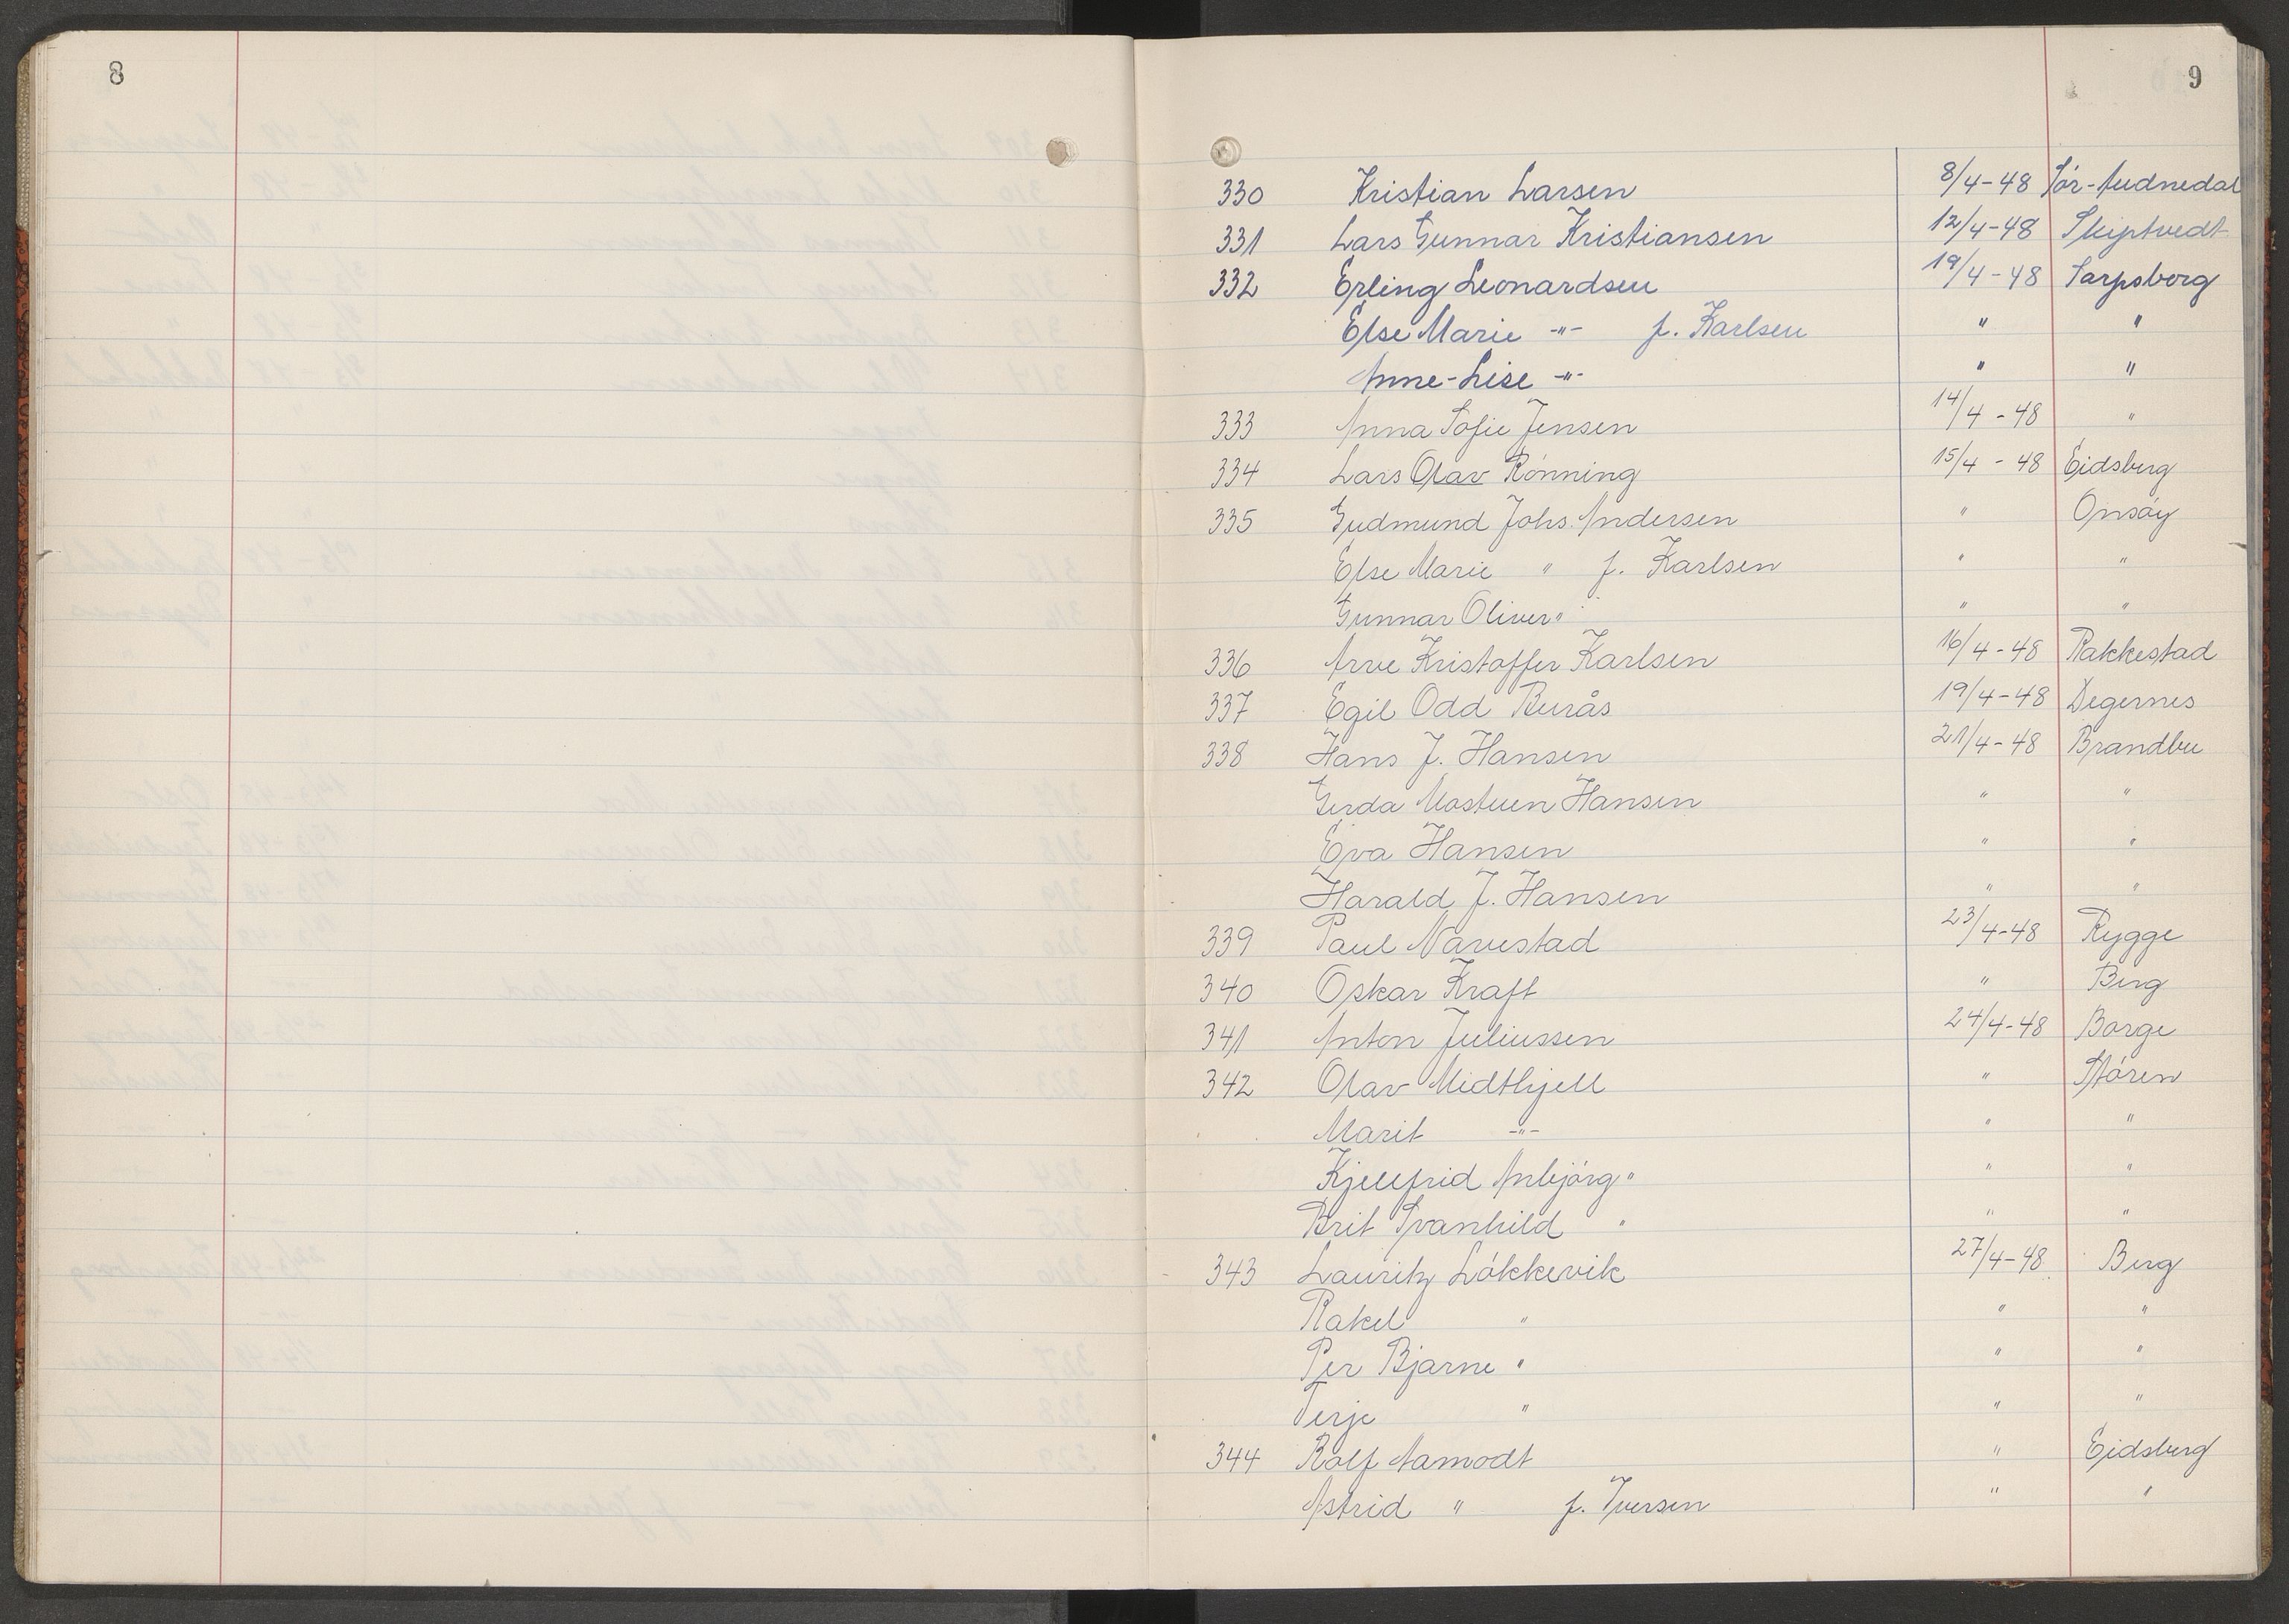 8
9
330 Kristian Larsen 8/4-48 Sör-Audnedal
331 Lars Gunnar Kristiansen 12/4-48 Skiptvedt
332 Erling Leonardsen 19/4-48 Sarpsborg
Else Marie -"- f. Karlsen " "
Anne-Lise -"- " "
333 Anna Sofie Jensen 14/4-48 "
334 Lars Olav Rönning 15/4-48 Eidsberg
335 Gudmund Johs. Andersen " Onsöy
Else Marie " f. Karlsen " "
Gunnar Oliver " " "
336 Arve Kristoffer Karlsen 16/4-48 Rakkestad
337 Egil Odd Burås 19/4-48 Degernes
338 Hans J. Hansen 21/4-48 Brandbu
Gerda Mostuen Hansen " "
Eva Hansen " "
Harald J. Hansen " "
339 Paul Navestad 23/4-48 Rygge
340 Oskar Kraft " Berg
341 Anton Juliussen 24/4-48 Borge
342 Olav Midthjell " Stören
Marit -"- " "
Kjellfrid Anbjörg " " "
Brit Svanhild " " "
343 Lauritz Lökkevik 27/4-48 Berg
Rakel " " "
Per Bjarne " " "
Terje " " "
344 Rolf Aamodt " Eidsberg
Astrid " f. Iversen " "